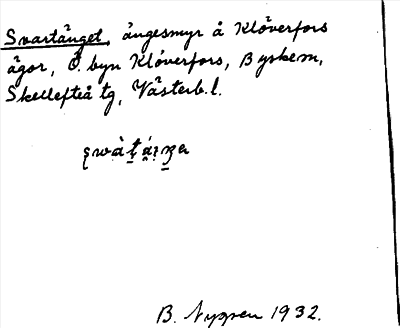 Svartänget, ängesmyr å Klöverfors
ägor, Ö. byn Klöverfors, Byskem,
Skellefteå tg, Västerb.l.
B. Nygren 1932.